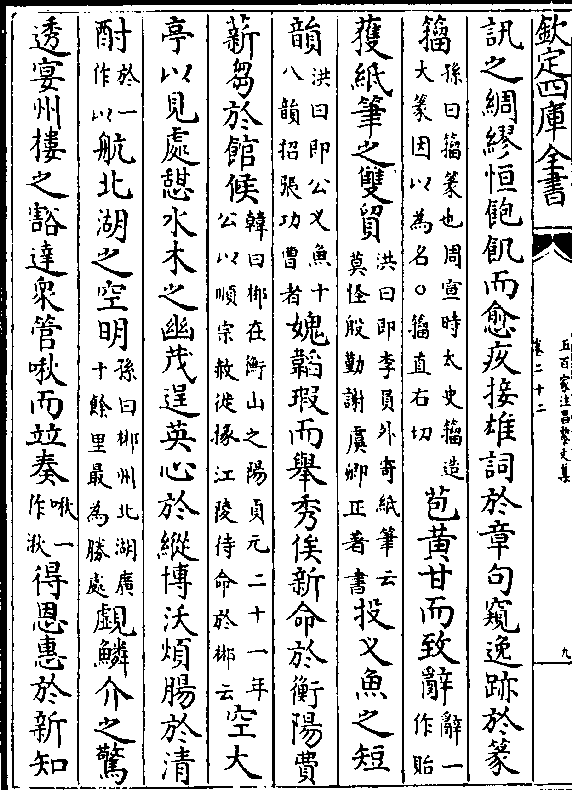 欽定四庫全書
五百家注昌黎文集
卷二十二
九
訊之綢繆恒飽飢而愈疚接雄詞於章句窺逸跡於篆
籀孫曰籀篆也周宣時太史籀造大篆因以為名○籀直右切苞黄甘而致辭辭一作貽
獲紙筆之雙貿洪曰即李員外寄紙筆云莫怪殷勤謝虞卿正著書投乂魚之短
韻洪曰即公乂魚十八韻招張功曹者媿韜瑕而舉秀俟新命於衡陽費
薪芻於館候韓曰郴在衡山之陽貞元二十一年公以順宗赦徙掾江陵待命於郴云空大
亭以見處憇水木之幽茂逞英心於縱博沃煩腸於清
酎於一作以航北湖之空明孫曰郴州北湖廣十餘里最為勝處覷鱗介之驚
透宴州樓之豁達衆管啾而竝奏啾一作湫得恩惠於新知